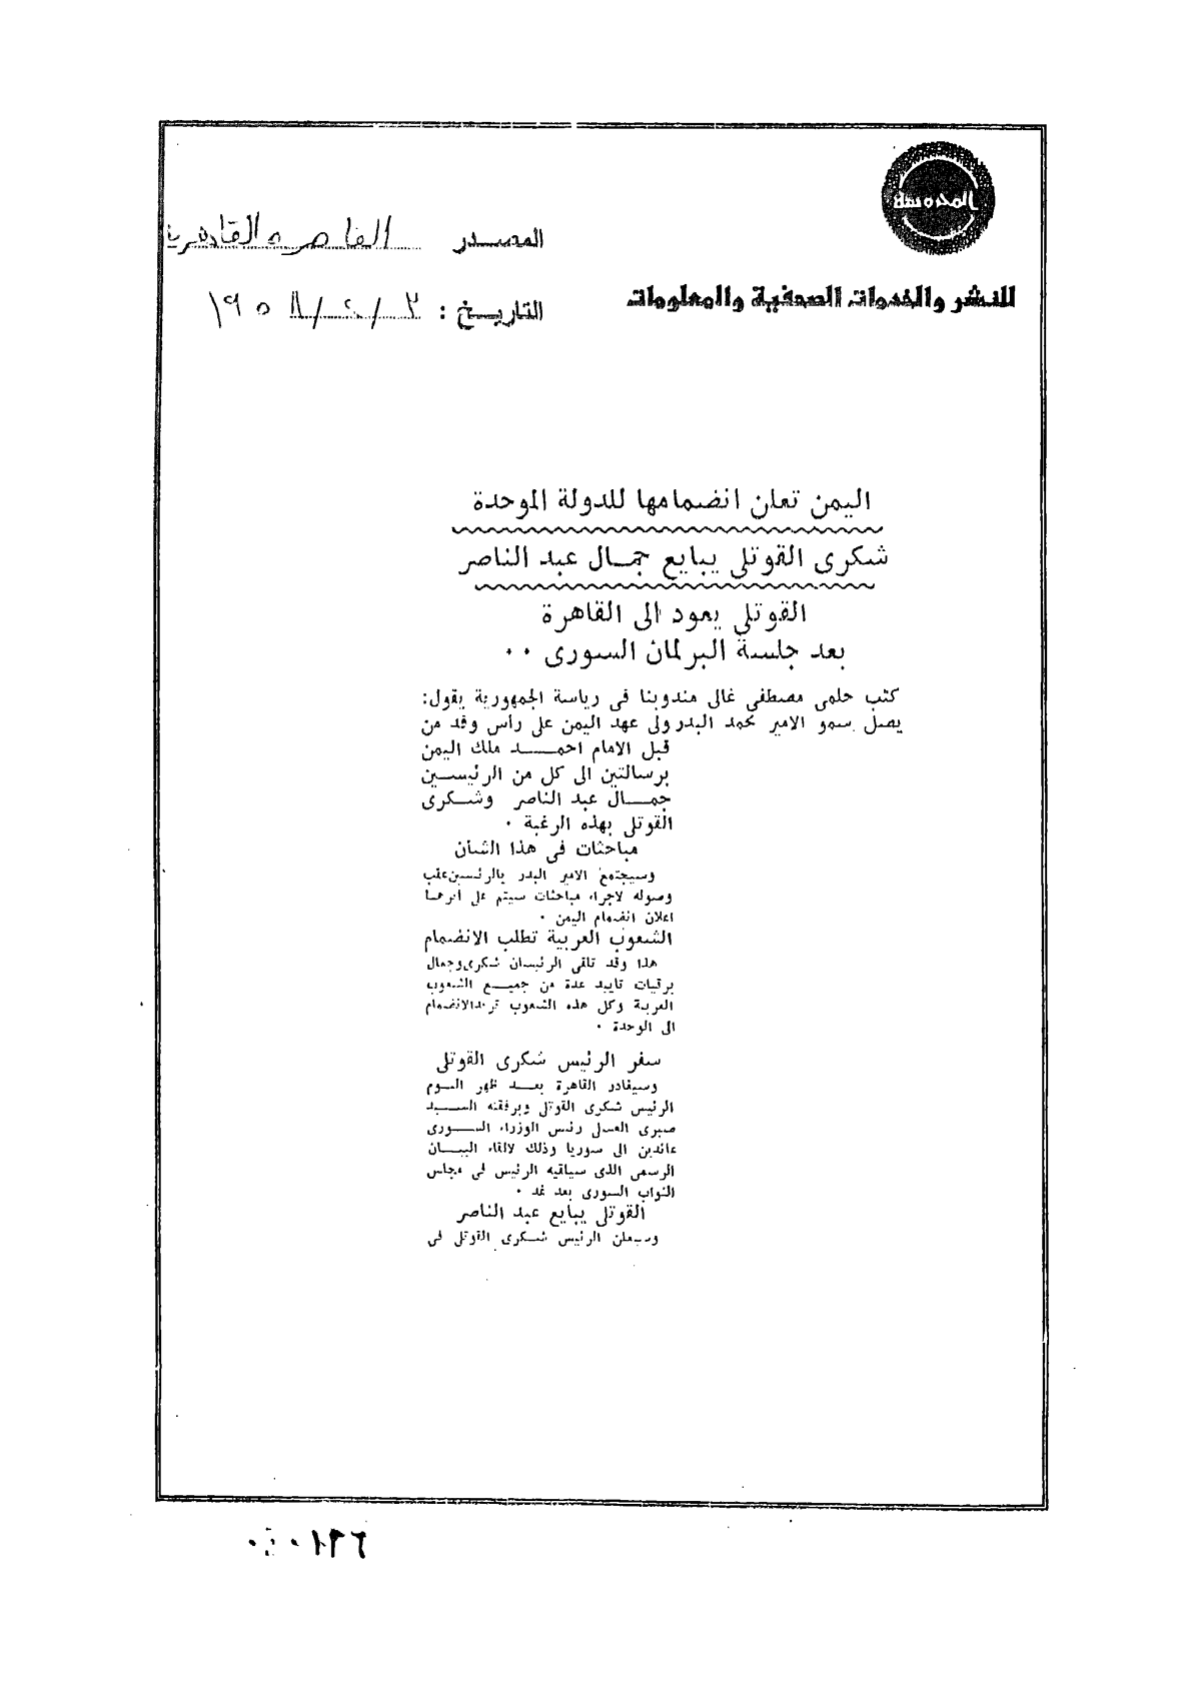 المحروسة
للنشر والخدمات الصحفية والمعلومات
المصدر القاهرة القاهرية
التاريخ : ٣ / ٢ / ١٩٥٨
اليمن تعلن انضمامها للدولة الموحدة
شكرى القوتلى يبايع جمال عبد الناصر
القوتلى يعود الى القاهرة
بعد جلسة البرلمان السورى ٠٠
كتب حلمى مصطفى غالى مندوبنا فى رياسة الجمهورية يقول:
يصل سمو الامير محمد البدر ولى عهد اليمن على رأس وفد من
قبل الامام احمد ملك اليمن
برسالتين الى كل من الرئيسين
جمال عبد الناصر وشكرى
القوتلى بهذه الرغبة ٠
مباحثات فى هذا الشأن
وسيجتمع الامير البدر بالرئيسين عقب
وصوله لاجراء مباحثات سيتم على اثرها
اعلان انضمام اليمن ٠
الشعوب العربية تطلب الانضمام
هذا وقد تلقى الرئيسان شكرى وجمال
برقيات تاييد عدة من جميع الشعوب
العربية وكل هذه الشعوب تريد الانضمام
الى الوحدة ٠
سفر الرئيس شكرى القوتلى
وسيغادر القاهرة بعد ظهر اليوم
الرئيس شكرى القوتلى ويرفقته السيد
صبرى العسلى رئس الوزراء السورى
عائدين الى سوريا وذلك لالقاء البيان
الرسمى الذى سيلقيه الرئيس فى مجلس
النواب السورى بعد غد ٠
القوتلى يبايع عبد الناصر
وسيعلن الرئيس شكرى القوتلى فى